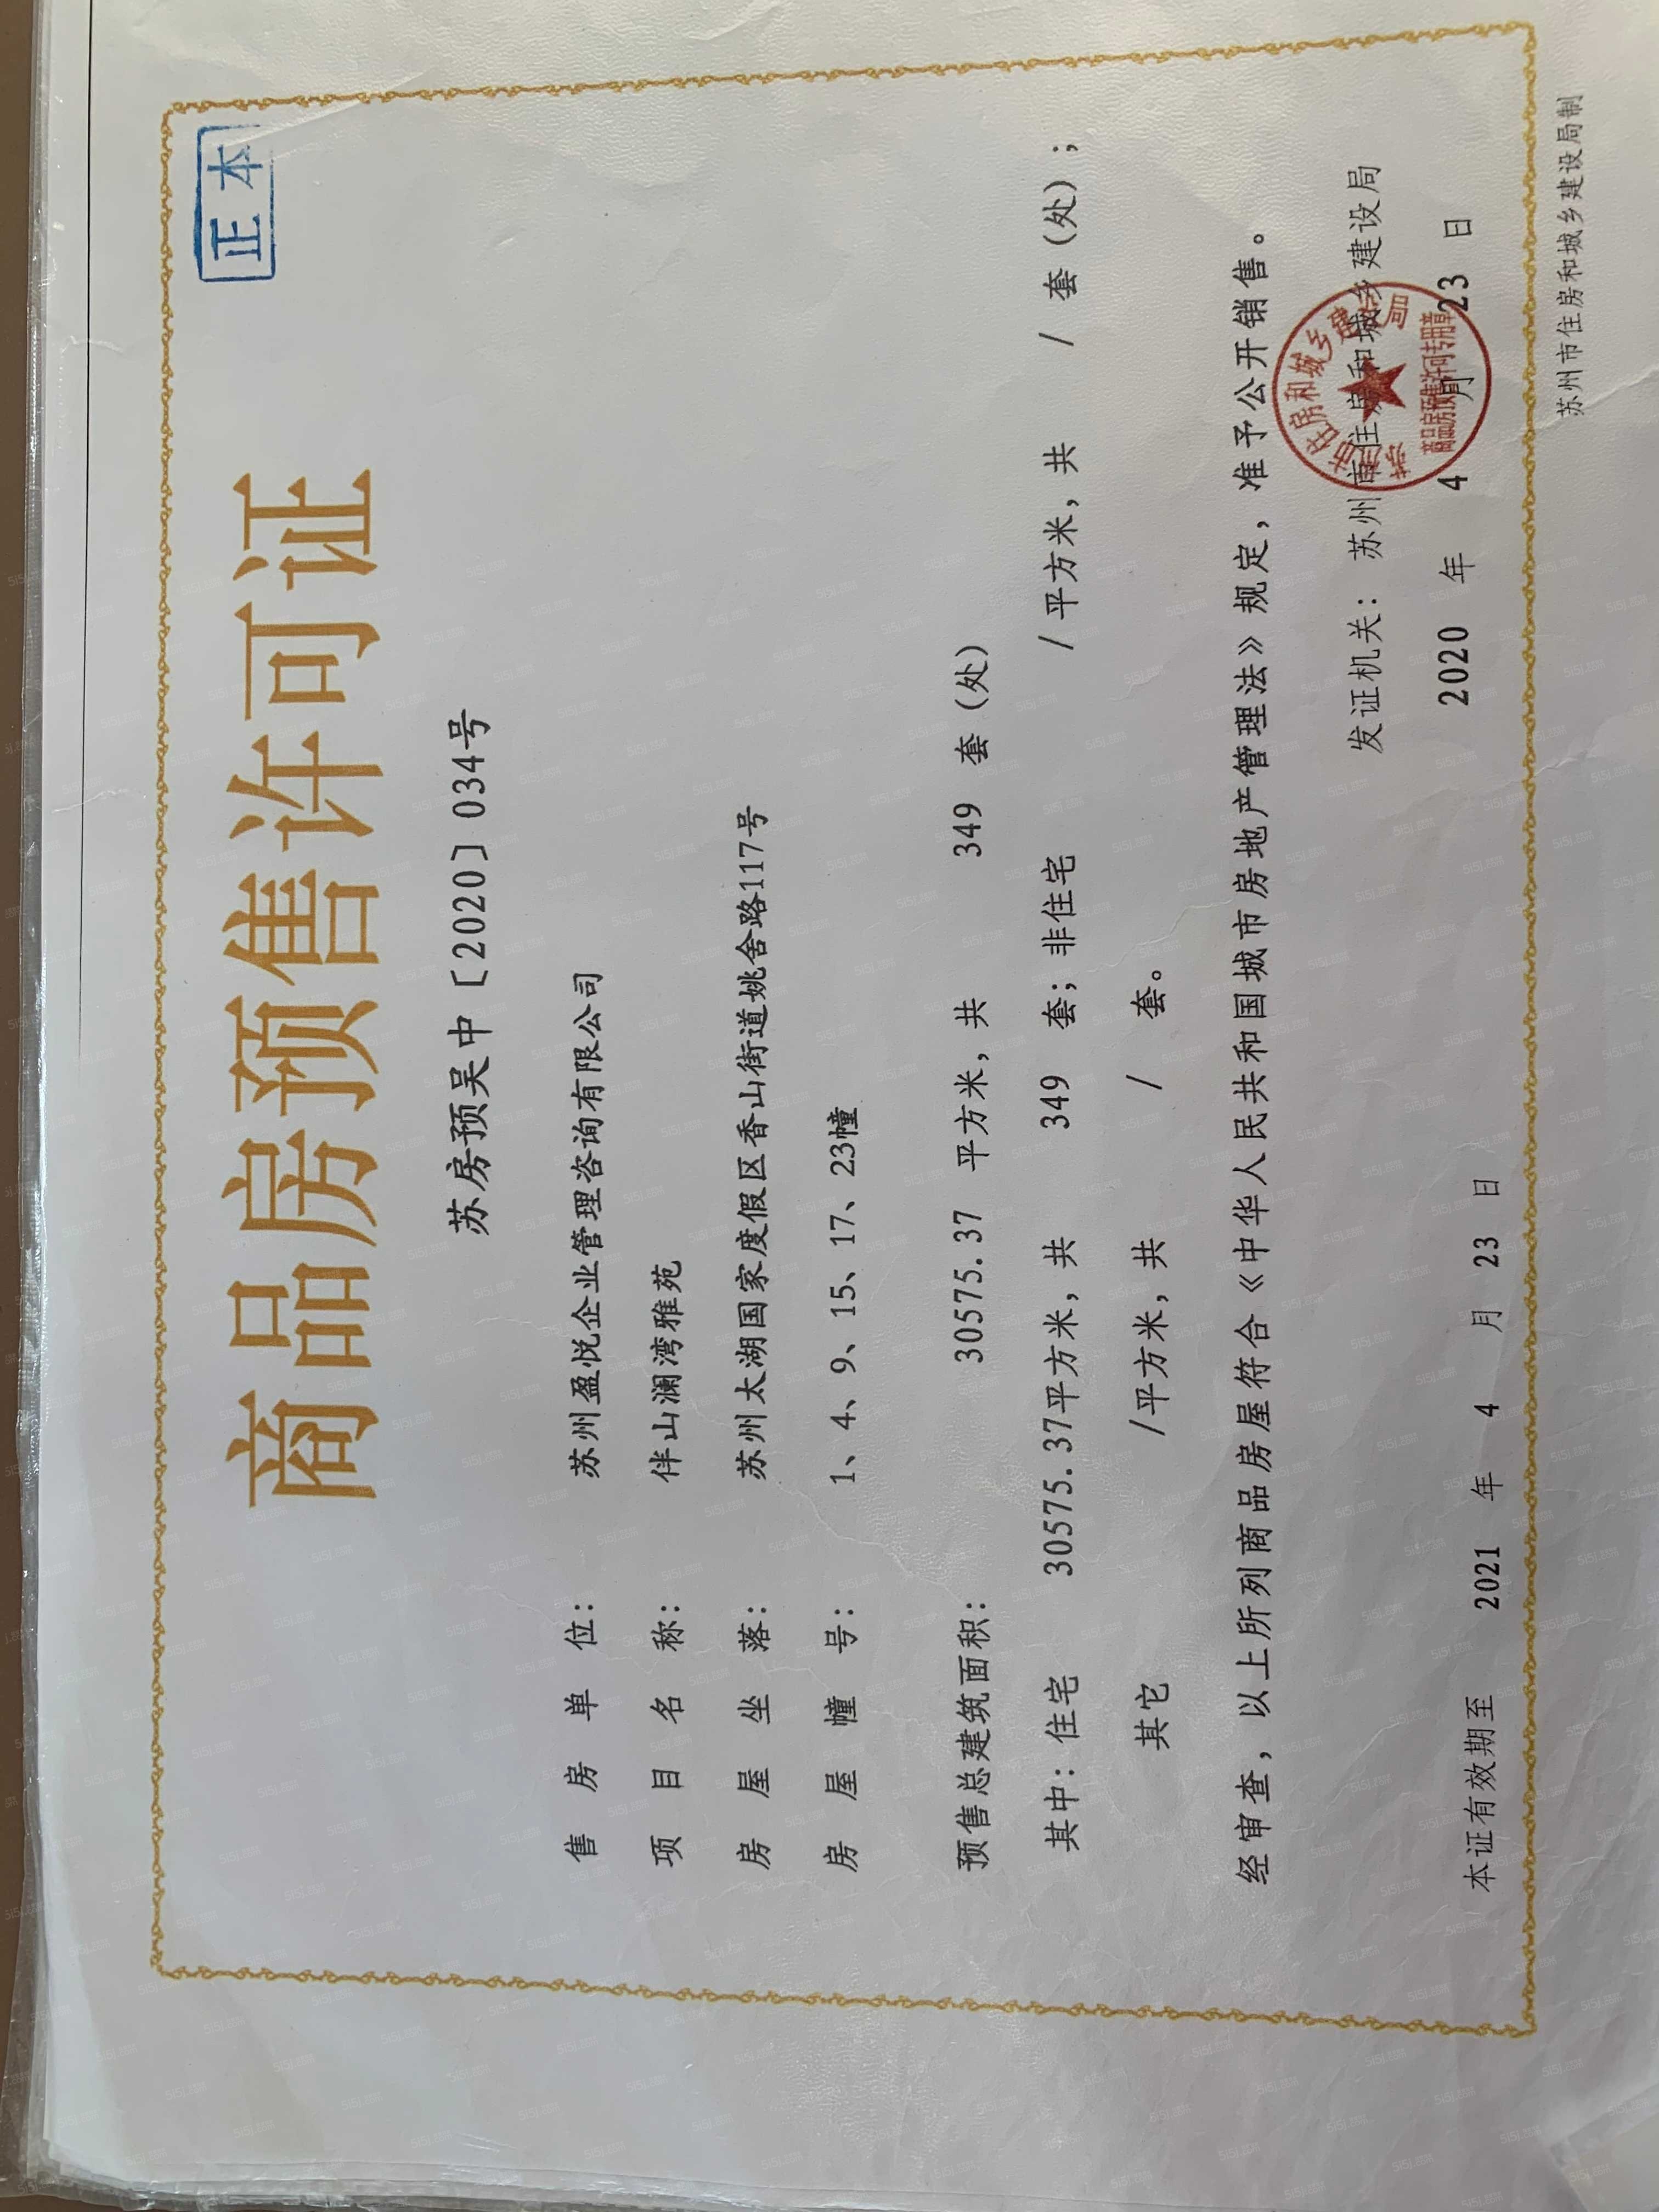 正本
商品房预售许可证
苏房预吴中〔2020〕034号
售房单位： 苏州盈悦企业管理咨询有限公司
项目名称： 伴山澜湾雅苑
房屋坐落： 苏州太湖国家度假区香山街道姚舍路117号
房屋幢号： 1、4、9、15、17、23幢
预售总建筑面积： 30575.37 平方米，共 349 套（处）
其中：住宅 30575.37平方米，共 349 套；非住宅 /平方米，共 / 套（处）；
其它 /平方米，共 / 套。
经审查，以上所列商品房屋符合《中华人民共和国城市房地产管理法》规定，准予公开销售。
发证机关： 苏州市住房和城乡建设局
商品房预售许可专用章
本证有效期至 2021 年 4 月 23 日 2020 年 4 月 23 日
苏州市住房和城乡建设局制